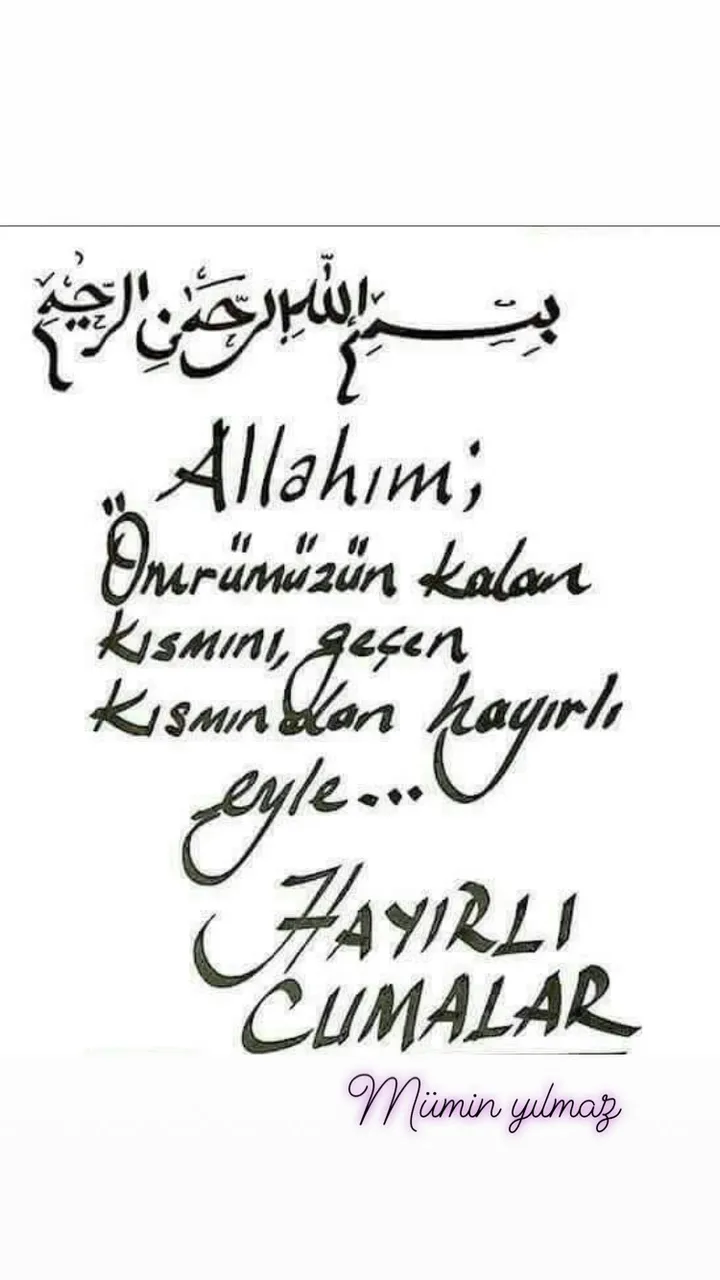 بِسْمِ اللّٰهِ الرَّحْمٰنِ الرَّحِيمِ
Allahım;
Ömrümüzün kalan
kısmını, geçen
kısmından hayırlı
eyle...
HAYIRLI
CUMALAR
Mümin yılmaz